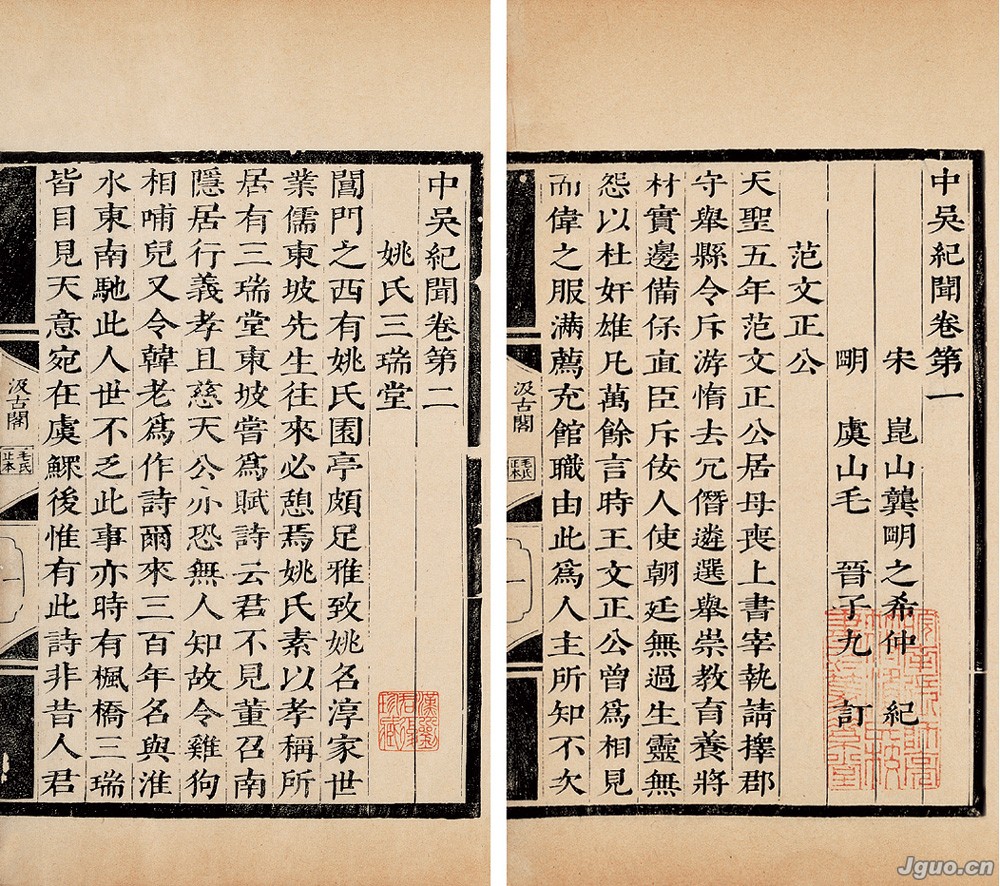 中吳紀聞卷第一
宋　崑山龔明之希仲　紀
明　虞山毛　晉子九　訂
范文正公
天聖五年范文正公居母喪上書宰執請擇郡
守舉縣令斥游惰去冗僭遴選舉崇教育養將
材實邊備保直臣斥佞人使朝廷無過生靈無
怨以杜奸雄凡萬餘言時王文正公曾爲相見
而偉之服滿薦充館職由此爲人主所知不次
汲古閣
毛氏正本
一
中吳紀聞卷第二
姚氏三瑞堂
閶門之西有姚氏園亭頗足雅致姚名淳家世
業儒東坡先生往來必憩焉姚氏素以孝稱所
居有三瑞堂東坡嘗爲賦詩云君不見董召南
隱居行義孝且慈天公亦恐無人知故令雞狗
相哺兒又令韓老爲作詩爾來三百年名與淮
水東南馳此人世不乏此事亦時有楓橋三瑞
皆目見天意宛在虞鰥後惟有此詩非昔人君
汲古閣
毛氏正本
一
Jguo.cn